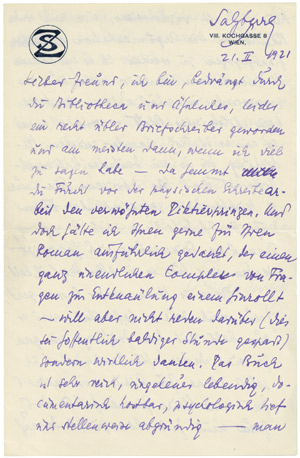 SZ
Salzburg
VIII. KOCHGASSE 8
WIEN,
21. II 1921
Lieber Freund, ich bin, bedrängt durch
die Bibliotheca und Ähnliches, leider
ein recht übler Briefschreiber geworden
und am meisten dann, wenn ich viel
zu sagen habe — da hemmt
die Furcht vor der physischen Schreibear-
beit den verwöhnten Und
doch hätte ich Ihnen gerne zu Ihrem
Roman ausführlich gedankt, der einen
ganz unendlichen Complex von Fra-
gen zur einem hinrollt
— will aber nicht reden darüber (dies
sei hoffentlich baldiger Stunde gespart)
sondern wirklich danken. Das Buch
ist sehr reich, ungeheuer lebendig, do-
cumentarisch kostbar, psychologisch tief
und stellenweise abgründig — man